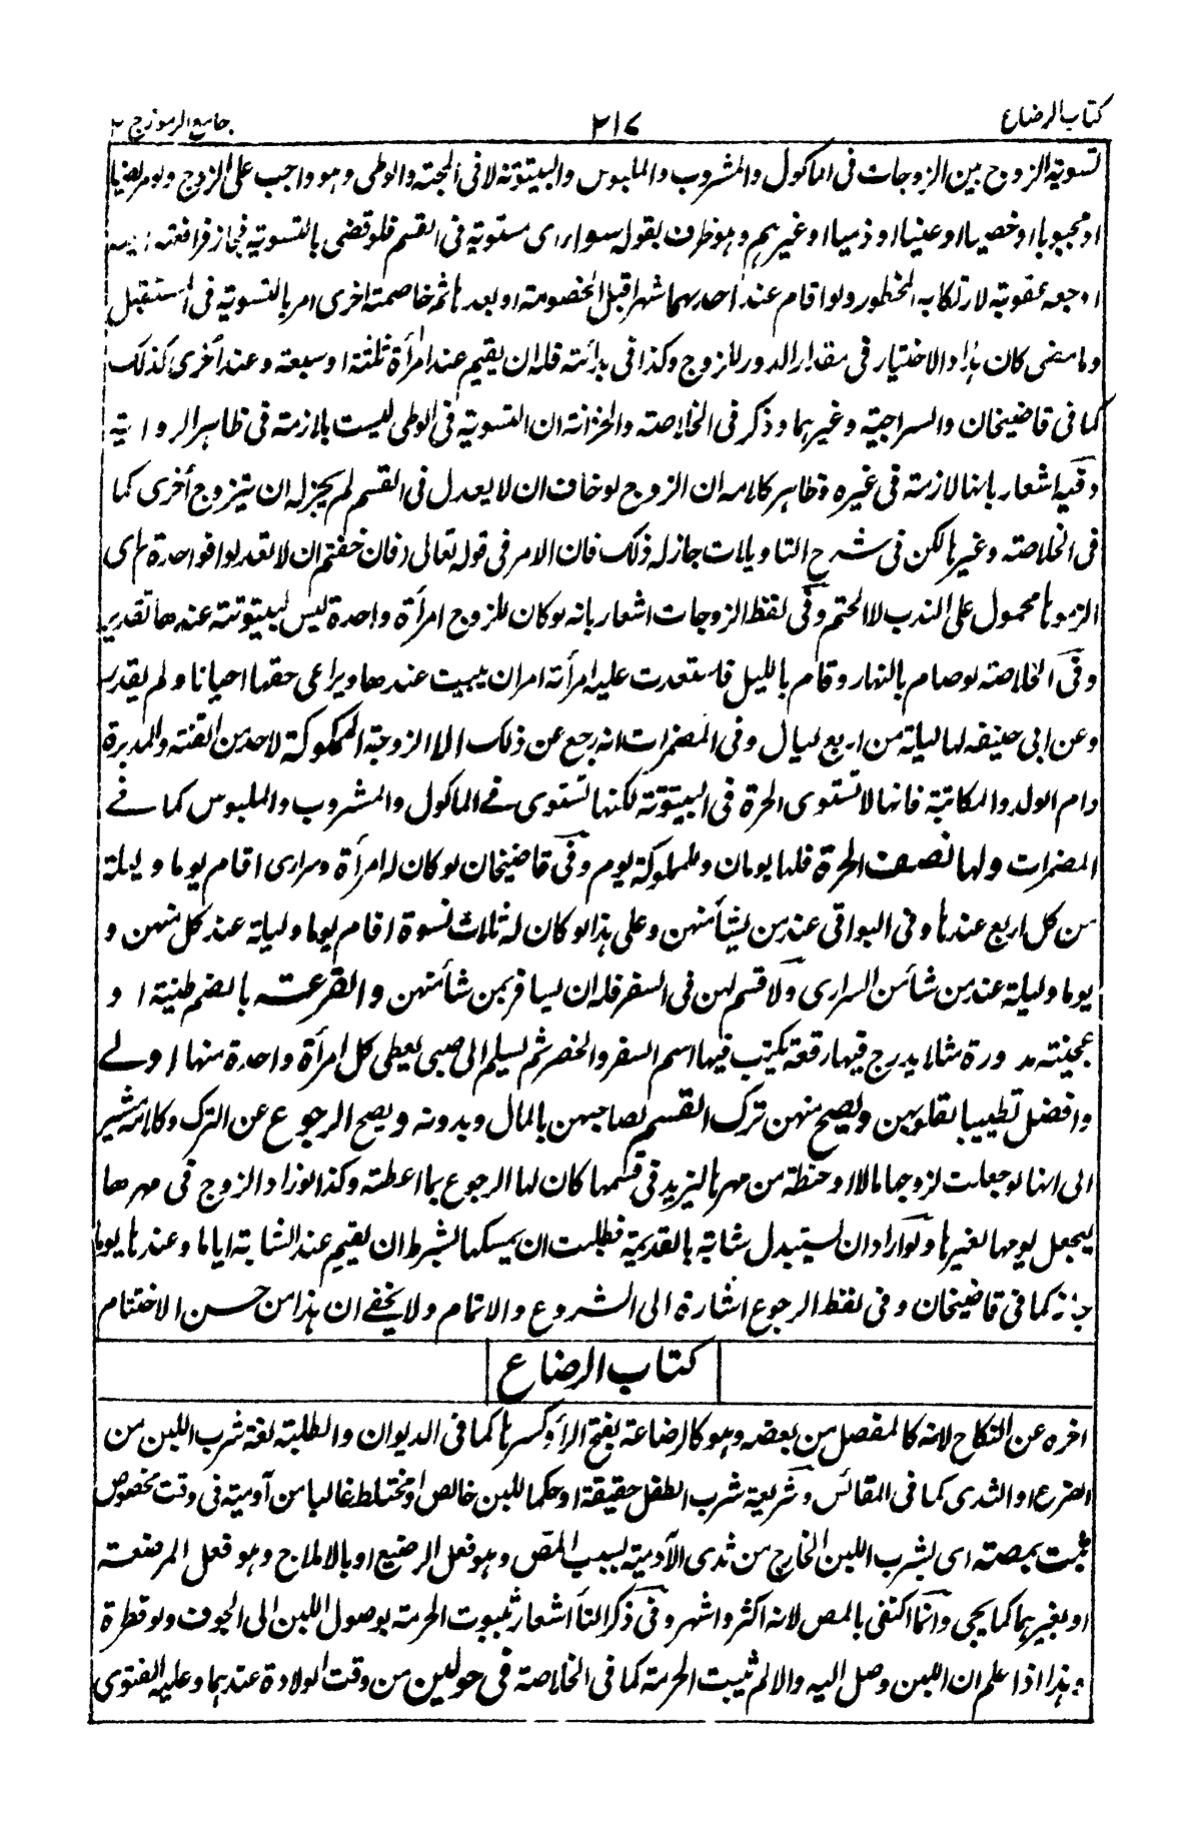 كتاب الرضاع
٢١٧
جامع الرموز ج ٢
تسوية الزوج بين الزوجات فى الماكول والمشروب والملبوس والبيتوتة لا فى المحبة والوطى وهو واجب على الزوج ولو مريضا
او مجبوبا او خصيا او عنينا او ذميا او غيرهم وهو ظرف لقوله سواء اى مستوية فى القسم فلو قضى بالتسوية فجاز فرافعته
اوجعه عقوبة لارتكابه المحظور ولو اقام عند احدهما شهرا قبل الخصومة او بعدها ثم خاصمته اخرى امر بالتسوية فى المستقبل
وما مضى كان هدرا والاختيار فى مقدار الدور للزوج وكذا فى بدأته فله ان يقيم عند امرأة ثلثة او سبعة وعند أخرى كذلك
كما فى قاضيخان والسراجية وغيرهما وذكر فى الخلاصة والخزانة ان التسوية فى الوطى ليست بلازمة فى ظاهر الرواية
وفيه اشعار بانها لازمة فى غيره وظاهر كلامه ان الزوج لو خاف ان لا يعدل فى القسم لم يجز له ان يتزوج أخرى كما
فى الخلاصة وغيرها لكن فى شرح التاويلات جاز له ذلك فان الامر فى قوله تعالى (فان خفتم ان لا تعدلوا فواحدة) اى
الزموها محمول على الندب لا الحتم وفى لفظ الزوجات اشعار بانه لو كان للزوج امرأة واحدة ليس لبيتوتته عندها تقدير
وفى الخلاصة لو صام بالنهار وقام بالليل فاستعدت عليه امرأته امر ان يبيت عندها ويراعى حقها احيانا ولم يقدر
وعن ابى حنيفة لها ليلة من اربع ليال وفى المضمرات انه رجع عن ذلك الا الزوجة المملوكة لاحد من القنة والمدبرة
وام الولد والمكاتبة فانها لا تستوى الحرة فى البيتوتة لكنها تستوى فے الماكول والمشروب والملبوس كما فے
المضمرات ولها نصف الحرة فلها يومان وللمملوكة يوم وفى قاضيخان لو كان له امرأة وسرارى اقام يوما وليلة
من كل اربع عندها وفى البواقى عند من يشأ منهن وعلى هذا لو كان له ثلاث نسوة اقام يوما وليلة عند كل منهن و
يوما وليلة عند من شأ من السرارى ولا قسم لهن فى السفر فله ان يسافر بمن شأ منهن والقرعة بالضم طينية او
عجينة مدورة مثلا يدرج فيها رقعة يكتب فيها اسم السفر والحضر ثم يسلم الى صبى يعطى كل امرأة واحدة منها اولے
وافضل تطييبا لقلوبهن ويصح منهن ترك القسم لصاحبهن بالمال وبدونه ويصح الرجوع عن الترك وكلامه مشير
الى انها لو جعلت لزوجها مالا او حنطة من مهرها ليزيد فى قسمها كان لها الرجوع بما اعطته وكذا لو زاد الزوج فى مهرها
ليجعل يومها لغيرها ولو اراد ان يستبدل شابة بالقديمة فطلبت ان يمسكها بشرط ان يقيم عند الشابة اياما وعندها يوما
جاز كما فى قاضيخان وفى لفظ الرجوع اشارة الى الشروع والاتمام ولا يخفے ان هذا من حسن الاختتام
كتاب الرضاع
اخره عن النكاح لانه كالمفصل من بعضه وهو كالرضاعة بفتح الرأ وكسرها كما فى الديوان والطلبة لغة شرب اللبن من
الضرع او الثدى كما فى المقائس وشريعة شرب الطفل حقيقة او حكما للبن خالص او مختلط غالبا من آدمية فى وقت مخصوص
يثبت بمصة اى بشرب اللبن الخارج من ثدى الآدمية بسبب المص وهو فعل الرضيع او بالاملاج وهو فعل المرضعة
او بغيرهما كما يجى وانما اكتفى بالمص لانه اكثر واشهر وفى ذكر التأ اشعار بثبوت الحرمة بوصول اللبن الى الجوف ولو قطرة
وهذا اذا علم ان اللبن وصل اليه والا لم تثبت الحرمة كما فى الخلاصة فى حولين من وقت الولادة عندهما وعليه الفتوى